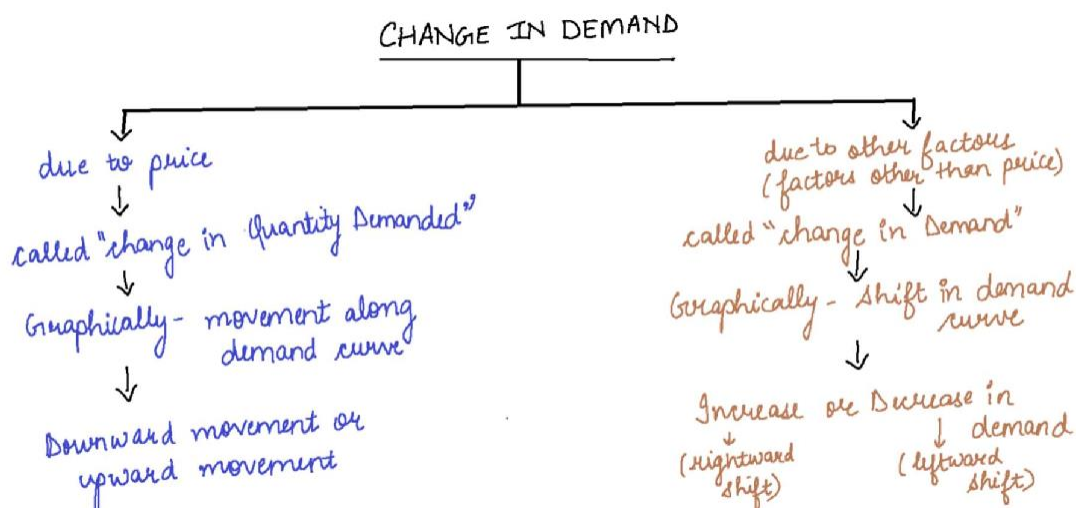 CHANGE IN DEMAND
due to price
called "change in Quantity Demanded"
Graphically - movement along
demand curve
Downward movement or
upward movement
due to other factors
(factors other than price)
called "change in Demand"
Graphically - shift in demand
curve
Increase or Decrease in
demand
(rightward
shift)
(leftward
shift)